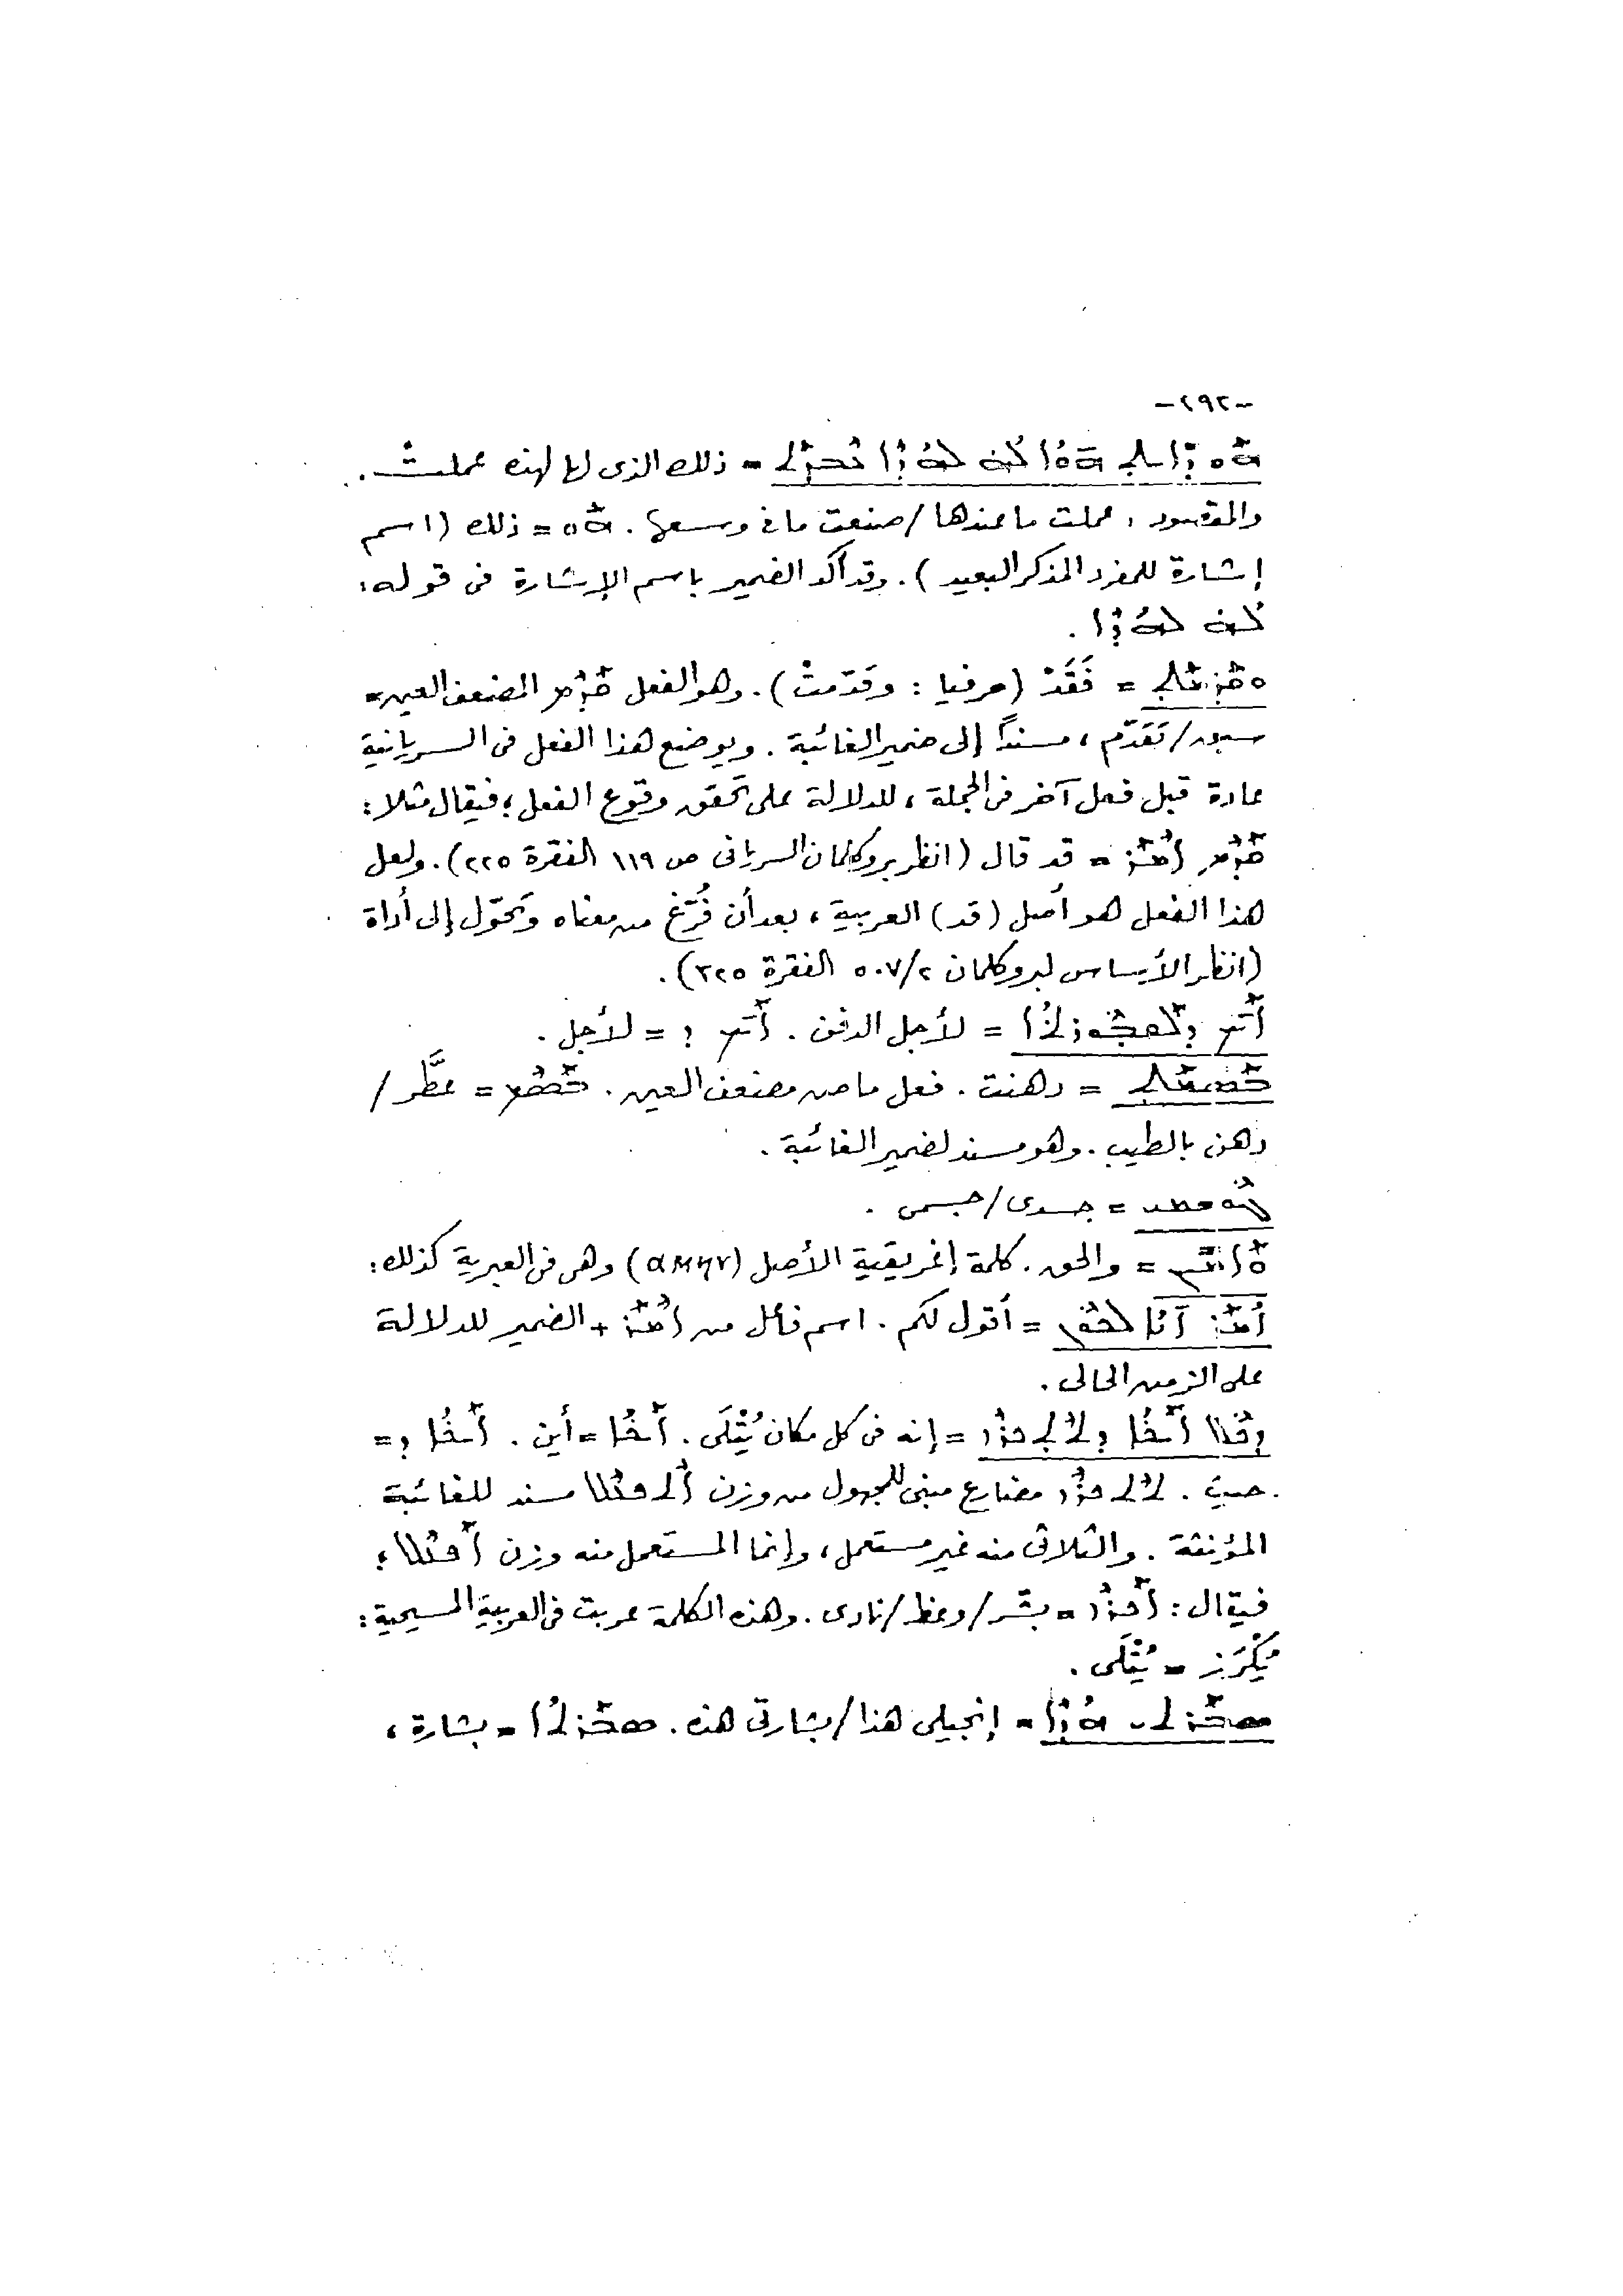 -٢٩٢-
= ذلك الذى لها لهذه عملتْ .
والمقصود : عملت ما عندها / صنعت ما فى وسعها . ܗܰܘ = ذلك (اسم
إشارة للمفرد المذكر البعيد) . وقد أكد الضمير باسم الإشارة فى قوله :
= فَقَدْ (حرفيا : وقدّمتْ) . وهو الفعل ܩܰܕܶܡ المضعف العين =
سبق / تَقَدّم ، مسنداً إلى ضمير الغائبة . ويوضع هذا الفعل فى السريانية
عادة قبل فعل آخر فى الجملة ، للدلالة على تحقق وقوع الفعل ؛ فيقال مثلا :
ܩܰܕܶܡ ܐܶܡܰܪ = قد قال (انظر بروكلمان السريانى ص ١١٩ الفقرة ٢٢٥) . ولعل
هذا الفعل هو أصل (قد) العربية ، بعد أن فُرّغ من معناه وتحوّل إلى أداة
(انظر الأساس لبروكلمان ٥٠٧/٢ الفقرة ٣٢٥) .
= لأجل الدفن . = لأجل .
ܒܰܣܡܰܬ = دهنت . فعل ماض مضعف العين . ܒܰܣܶܡ = عطَّر /
دهن بالطيب . وهو مسند لضمير الغائبة .
ܓܘܫܡܝ = جسدى / جسمى .
ܘܐܡܝܢ = والحق . كلمة إغريقية الأصل (αμην) وهى فى العبرية كذلك :
ܐܳܡܰܪ ܐ̱ܢܳܐ ܠܟܽܘܢ = أقول لكم . اسم فاعل من ܐܶܡܰܪ + الضمير للدلالة
على الزمن الحالى .
= إنه فى كل مكان يُتْلَى . ܐܰܝܟܳܐ = أين . ܐܰܝܟܳܐ ܕ =
حيث . ܬܬܟܪܙ مضارع مبنى للمجهول من وزن مسند للغائبة
المؤنثة . والثلاثى منه غير مستعمل ، وإنما المستعمل منه وزن ܐܰܦܥܶܠ ؛
فيقال : ܐܰܟܪܶܙ = بشّر / وعظ / نادى . وهذه الكلمة عربت فى العربية المسيحية :
يُكْرَز = يُتْلَى .
ܣܒܰܪܬܝ ܗܳܕܶܐ = إنجيلى هذا / بشارتى هذه . ܣܒܰܪܬܳܐ = بشارة ،